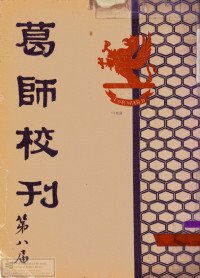 葛師校刊
第八屆
FORWARD